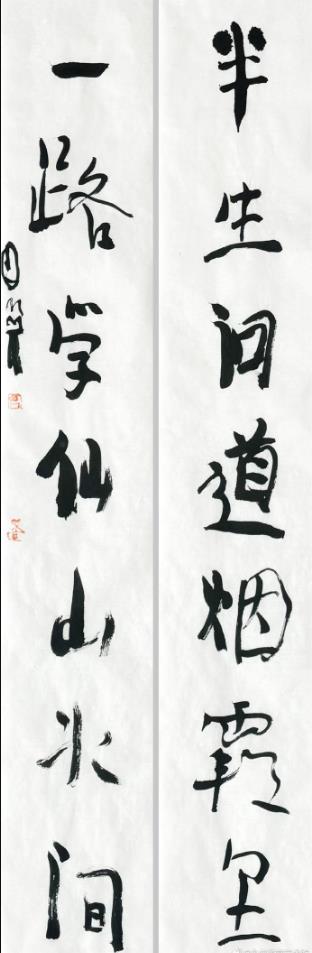 半生问道烟霞里
一路学仙山水间